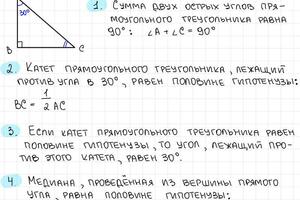 1. Сумма двух острых углов пря-
моугольного треугольника равна
90°: ∠A + ∠C = 90°
30°
B C
2. Катет прямоугольного треугольника, лежащий
против угла в 30°, равен половине гипотенузы:
BC = 1/2 AC
3. Если катет прямоугольного треугольника равен
половине гипотенузы, то угол, лежащий про-
тив этого катета, равен 30°.
4. Медиана, проведённая из вершины прямого
угла, равна половине гипотенузы: